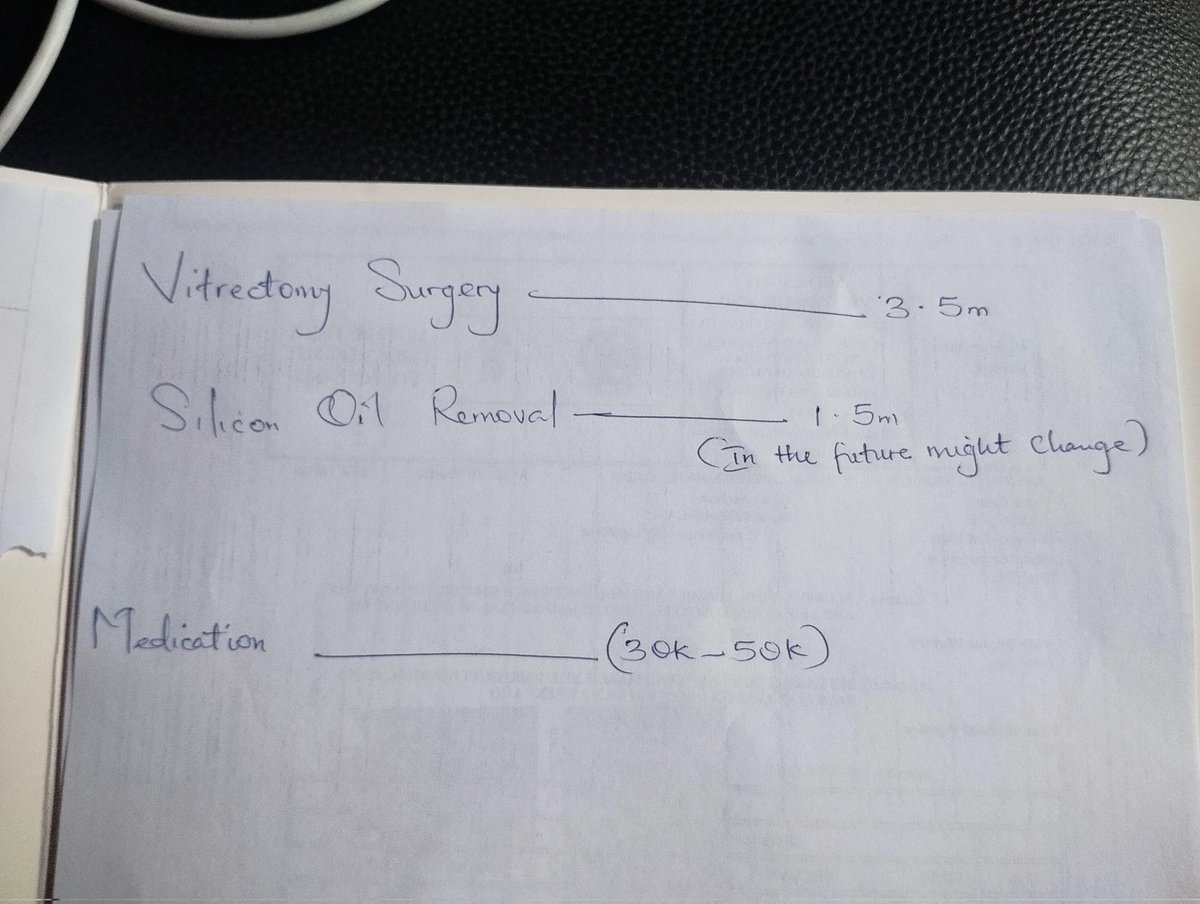 Vitrectomy Surgery — 3.5m
Silicon Oil Removal — 1.5m
(In the future might change)
Medication — (30k-50k)